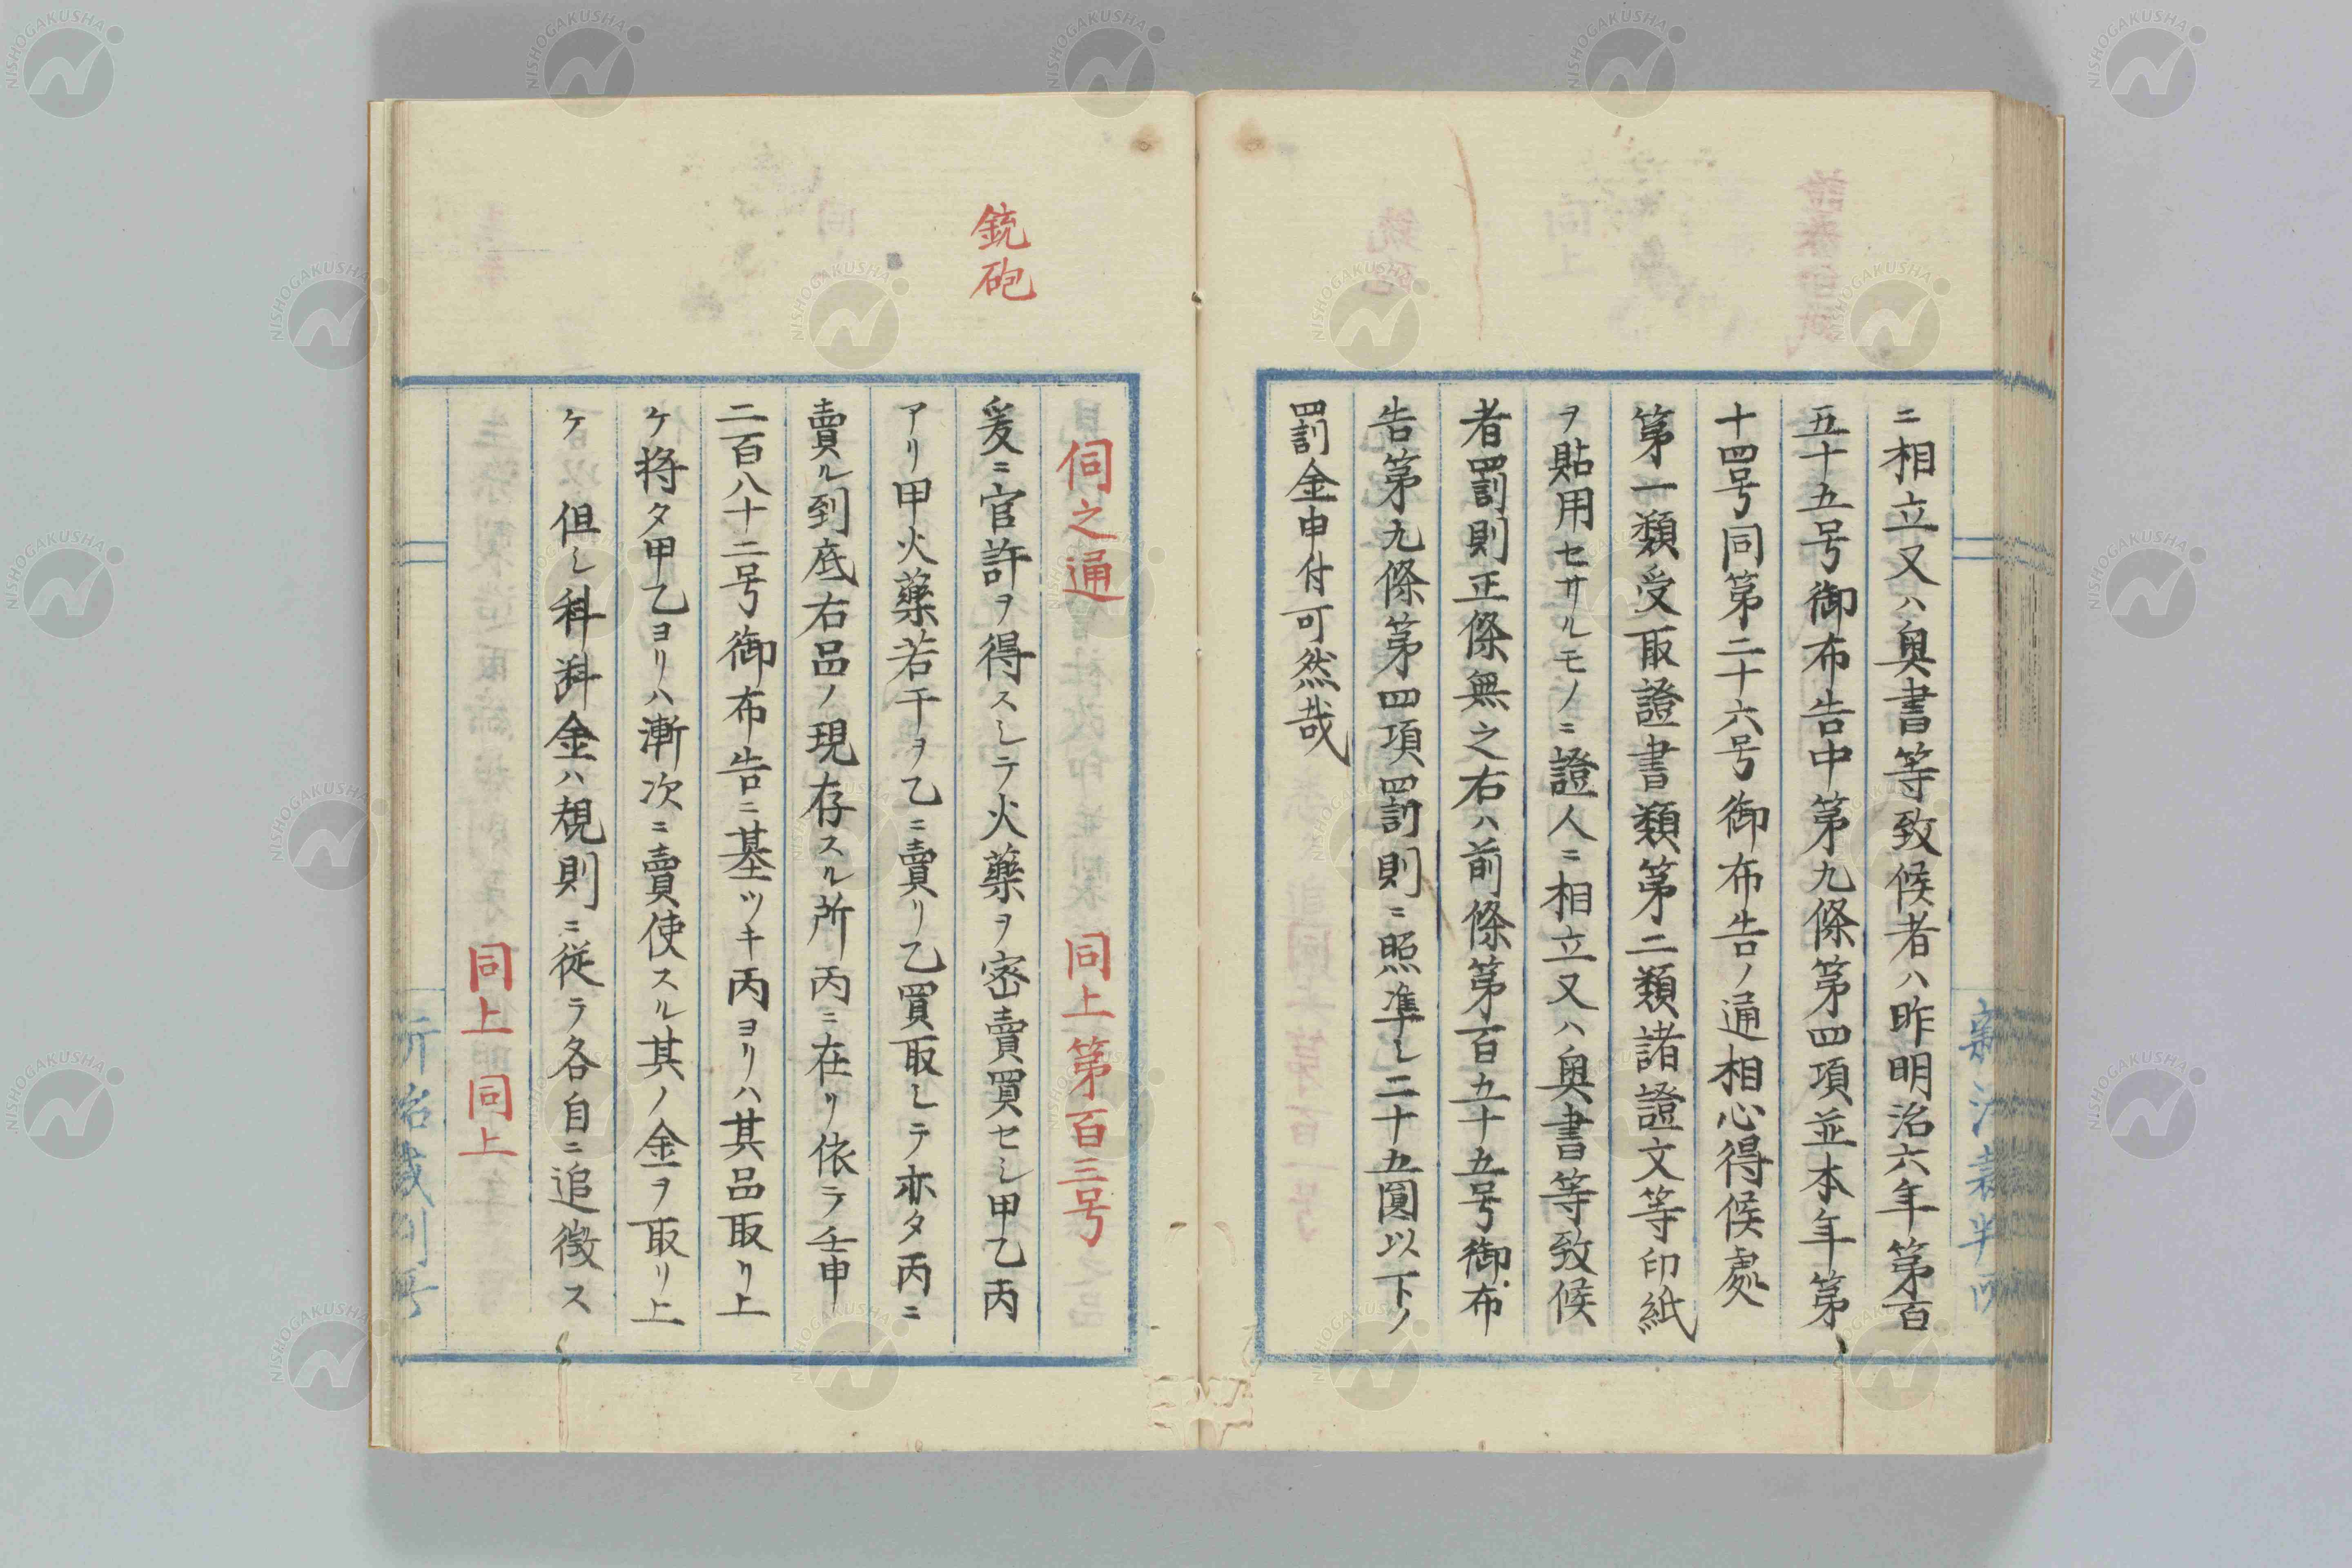 ニ相立又ハ奥書等致候者ハ昨明治六年第百
五十五号御布告中第九條第四項並本年第
十四号同第二十六号御布告ノ通相心得候處
第一類受取證書類第二類諸證文等印紙
ヲ貼用セサルモノニ證人ニ相立又ハ奥書等致候
者罰則正條無之右ハ前條第百五十五号御布
告第九條第四項罰則ニ照準シ二十五圓以下ノ
罰金申付可然哉
伺之通 同上第百三号
銃砲
爰ニ官許ヲ得スシテ火藥ヲ密賣買セシ甲乙丙
アリ甲火藥若干ヲ乙ニ賣リ乙買取シテ亦タ丙ニ
賣ル到底右品ノ現存スル所丙ニ在リ依テ壬申
二百八十二号御布告ニ基ツキ丙ヨリハ其品取リ上
ケ将タ甲乙ヨリハ漸次ニ賣使スル其ノ金ヲ取リ上
ケ 但シ科料金ハ規則ニ従テ各自ニ追徴ス
同上 同上
NISHOGAKUSHA